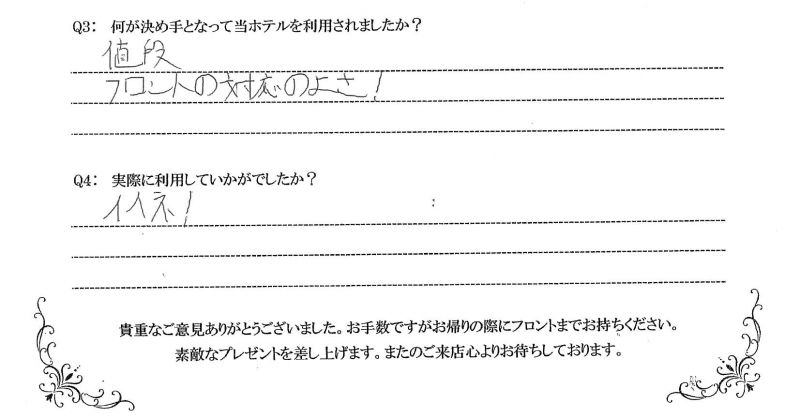 Q3： 何が決め手となって当ホテルを利用されましたか？
値段
フロントの対応のよさ！
Q4： 実際に利用していかがでしたか？
イイネ！
貴重なご意見ありがとうございました。お手数ですがお帰りの際にフロントまでお持ちください。
素敵なプレゼントを差し上げます。またのご来店心よりお待ちしております。